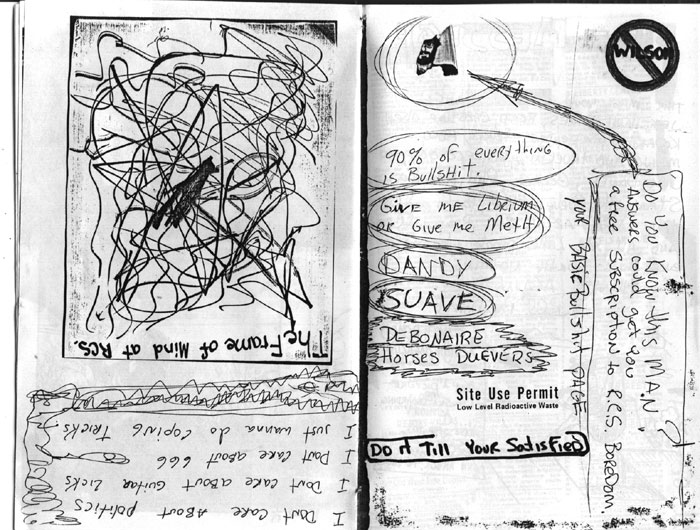 I Dont care About politics
I Dont care about Guitar Licks
I Dont care about 666
I just wanna do coping tricks
The Frame of Mind at RCS.
WILSON
90% of everything
is Bullshit.
Give me Librium
or Give me Meth
DANDY
SUAVE
DEBONAIRE
Horses Duevers
Site Use Permit
Low Level Radioactive Waste
Do it Till Your Satisfied
Do You Know this MAN?
Answers could get you
a free Subscription to R.C.S. Boredom
your Basic Bullshit PAGE